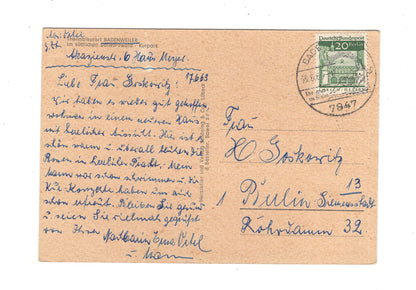 Thermalkurort BADENWEILER
im südlichen Schwarzwald - Kurpark
Haus Meyer
17663
Liebe Frau Goskowitz!
Wir haben es wieder gut getroffen,
wohnen in einem neuen Haus
mit herrlicher Aussicht. Hier ist es
schön warm u. überall blühen die
Rosen in herrlicher Pracht. Mein
Mann war schon schwimmen u. die
Kur-Konzerte haben wir uns
schon erfreut. Bleiben Sie gesund
u. seien Sie vielmals gegrüßt
von Ihrer Nachbarin Erna
u. Mann
Deutsche Bundespost
20
Berlin
7847
Frau
H. Goskowitz
1 Berlin 13
Siemensstadt
Rohrdamm 32.